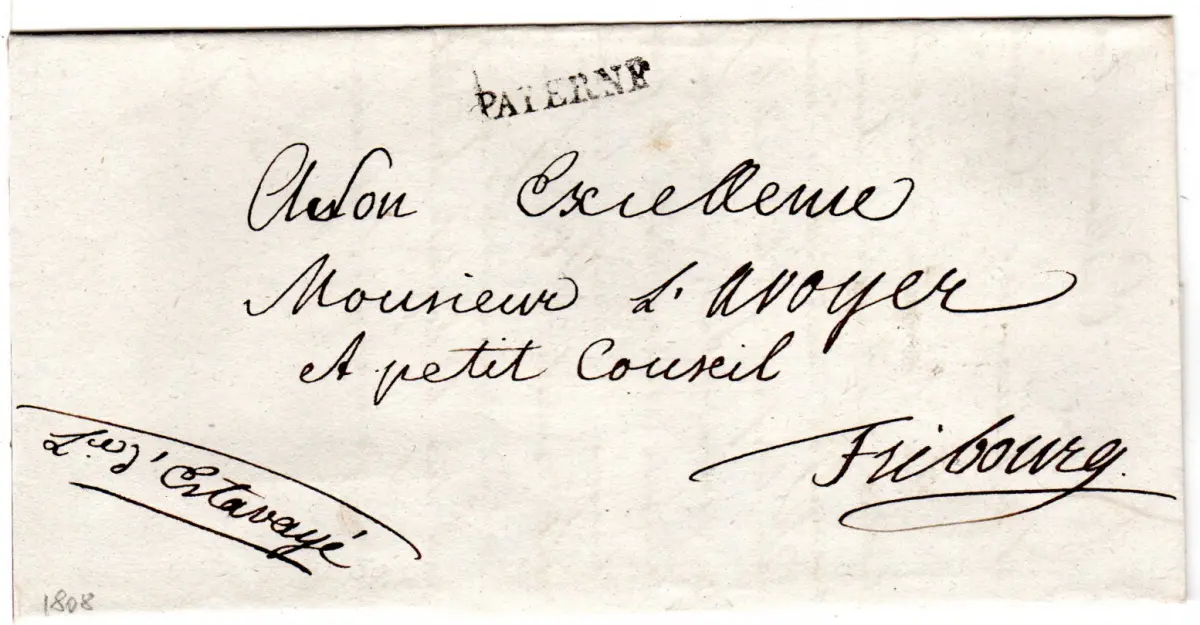 PAYERNE
A Son Excellence
Monsieur L'avoyer
et petit Conseil
Fribourg.
L.ce d'Estavayé
1808